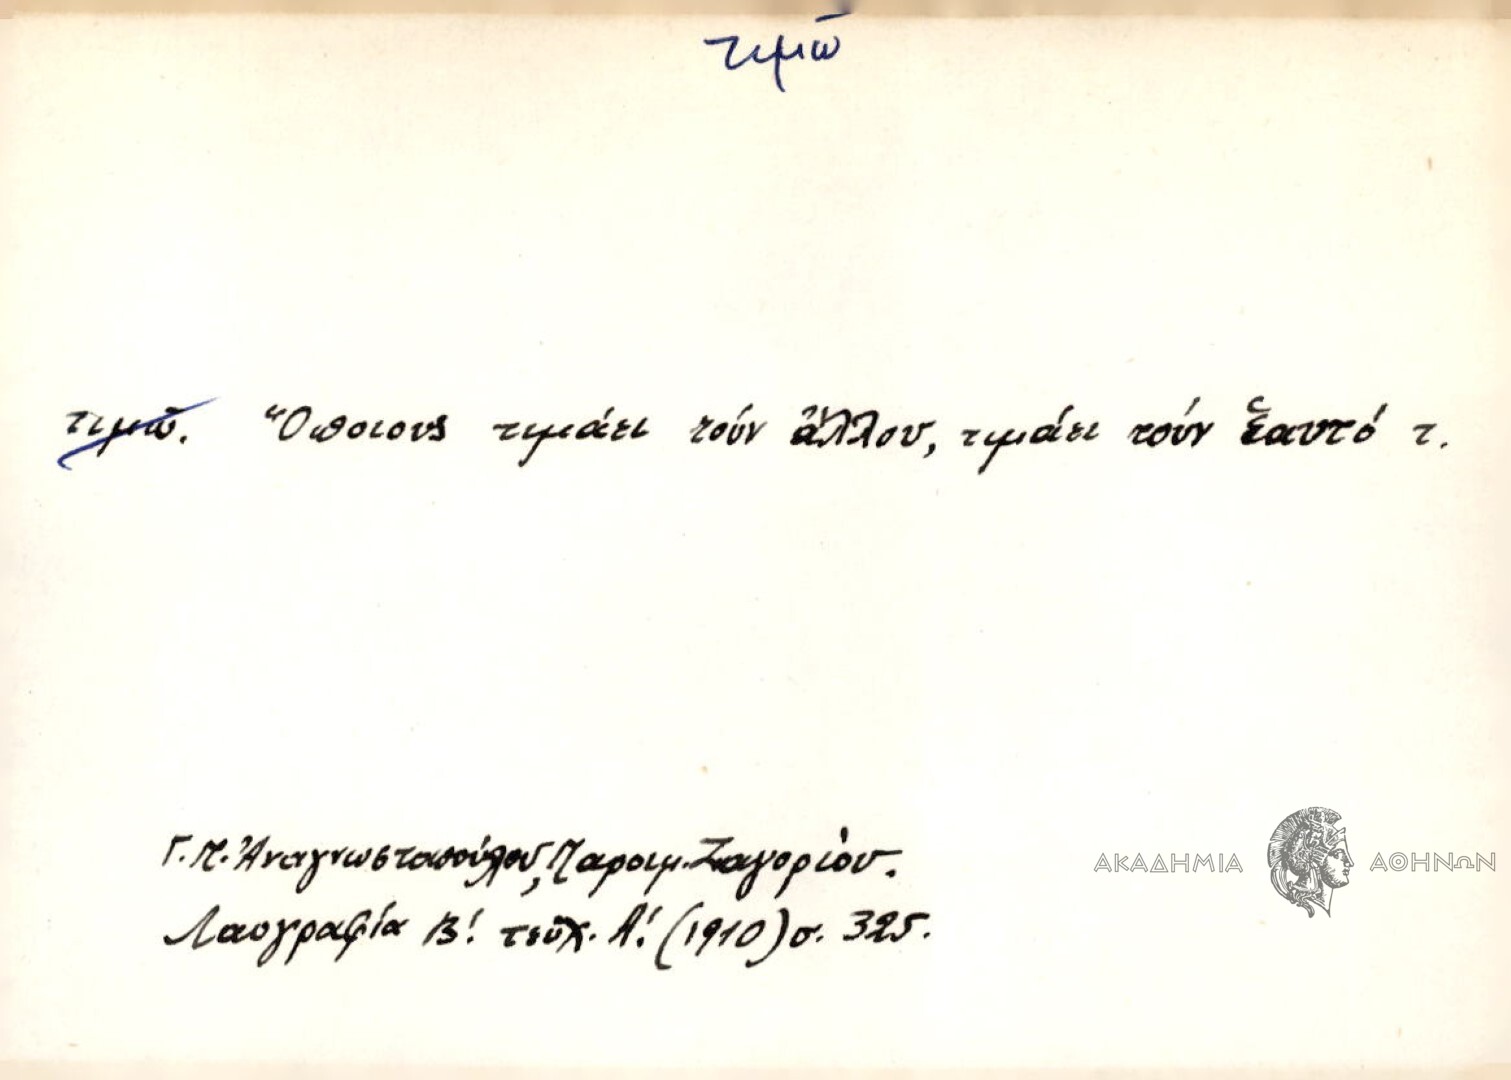 τιμῶ
τιμῶ. Ὅποιους τιμάει τούν ἄλλου, τιμάει τούν ἑαυτό τ.
Γ.Π. Ἀναγνωστοπούλου, Παροιμ. Ζαγορίου.
Λαογραφία Β΄. τεῦχ. Α΄. (1910) σ. 325.
ΑΚΑΔΗΜΙΑ ΑΘΗΝΩΝ